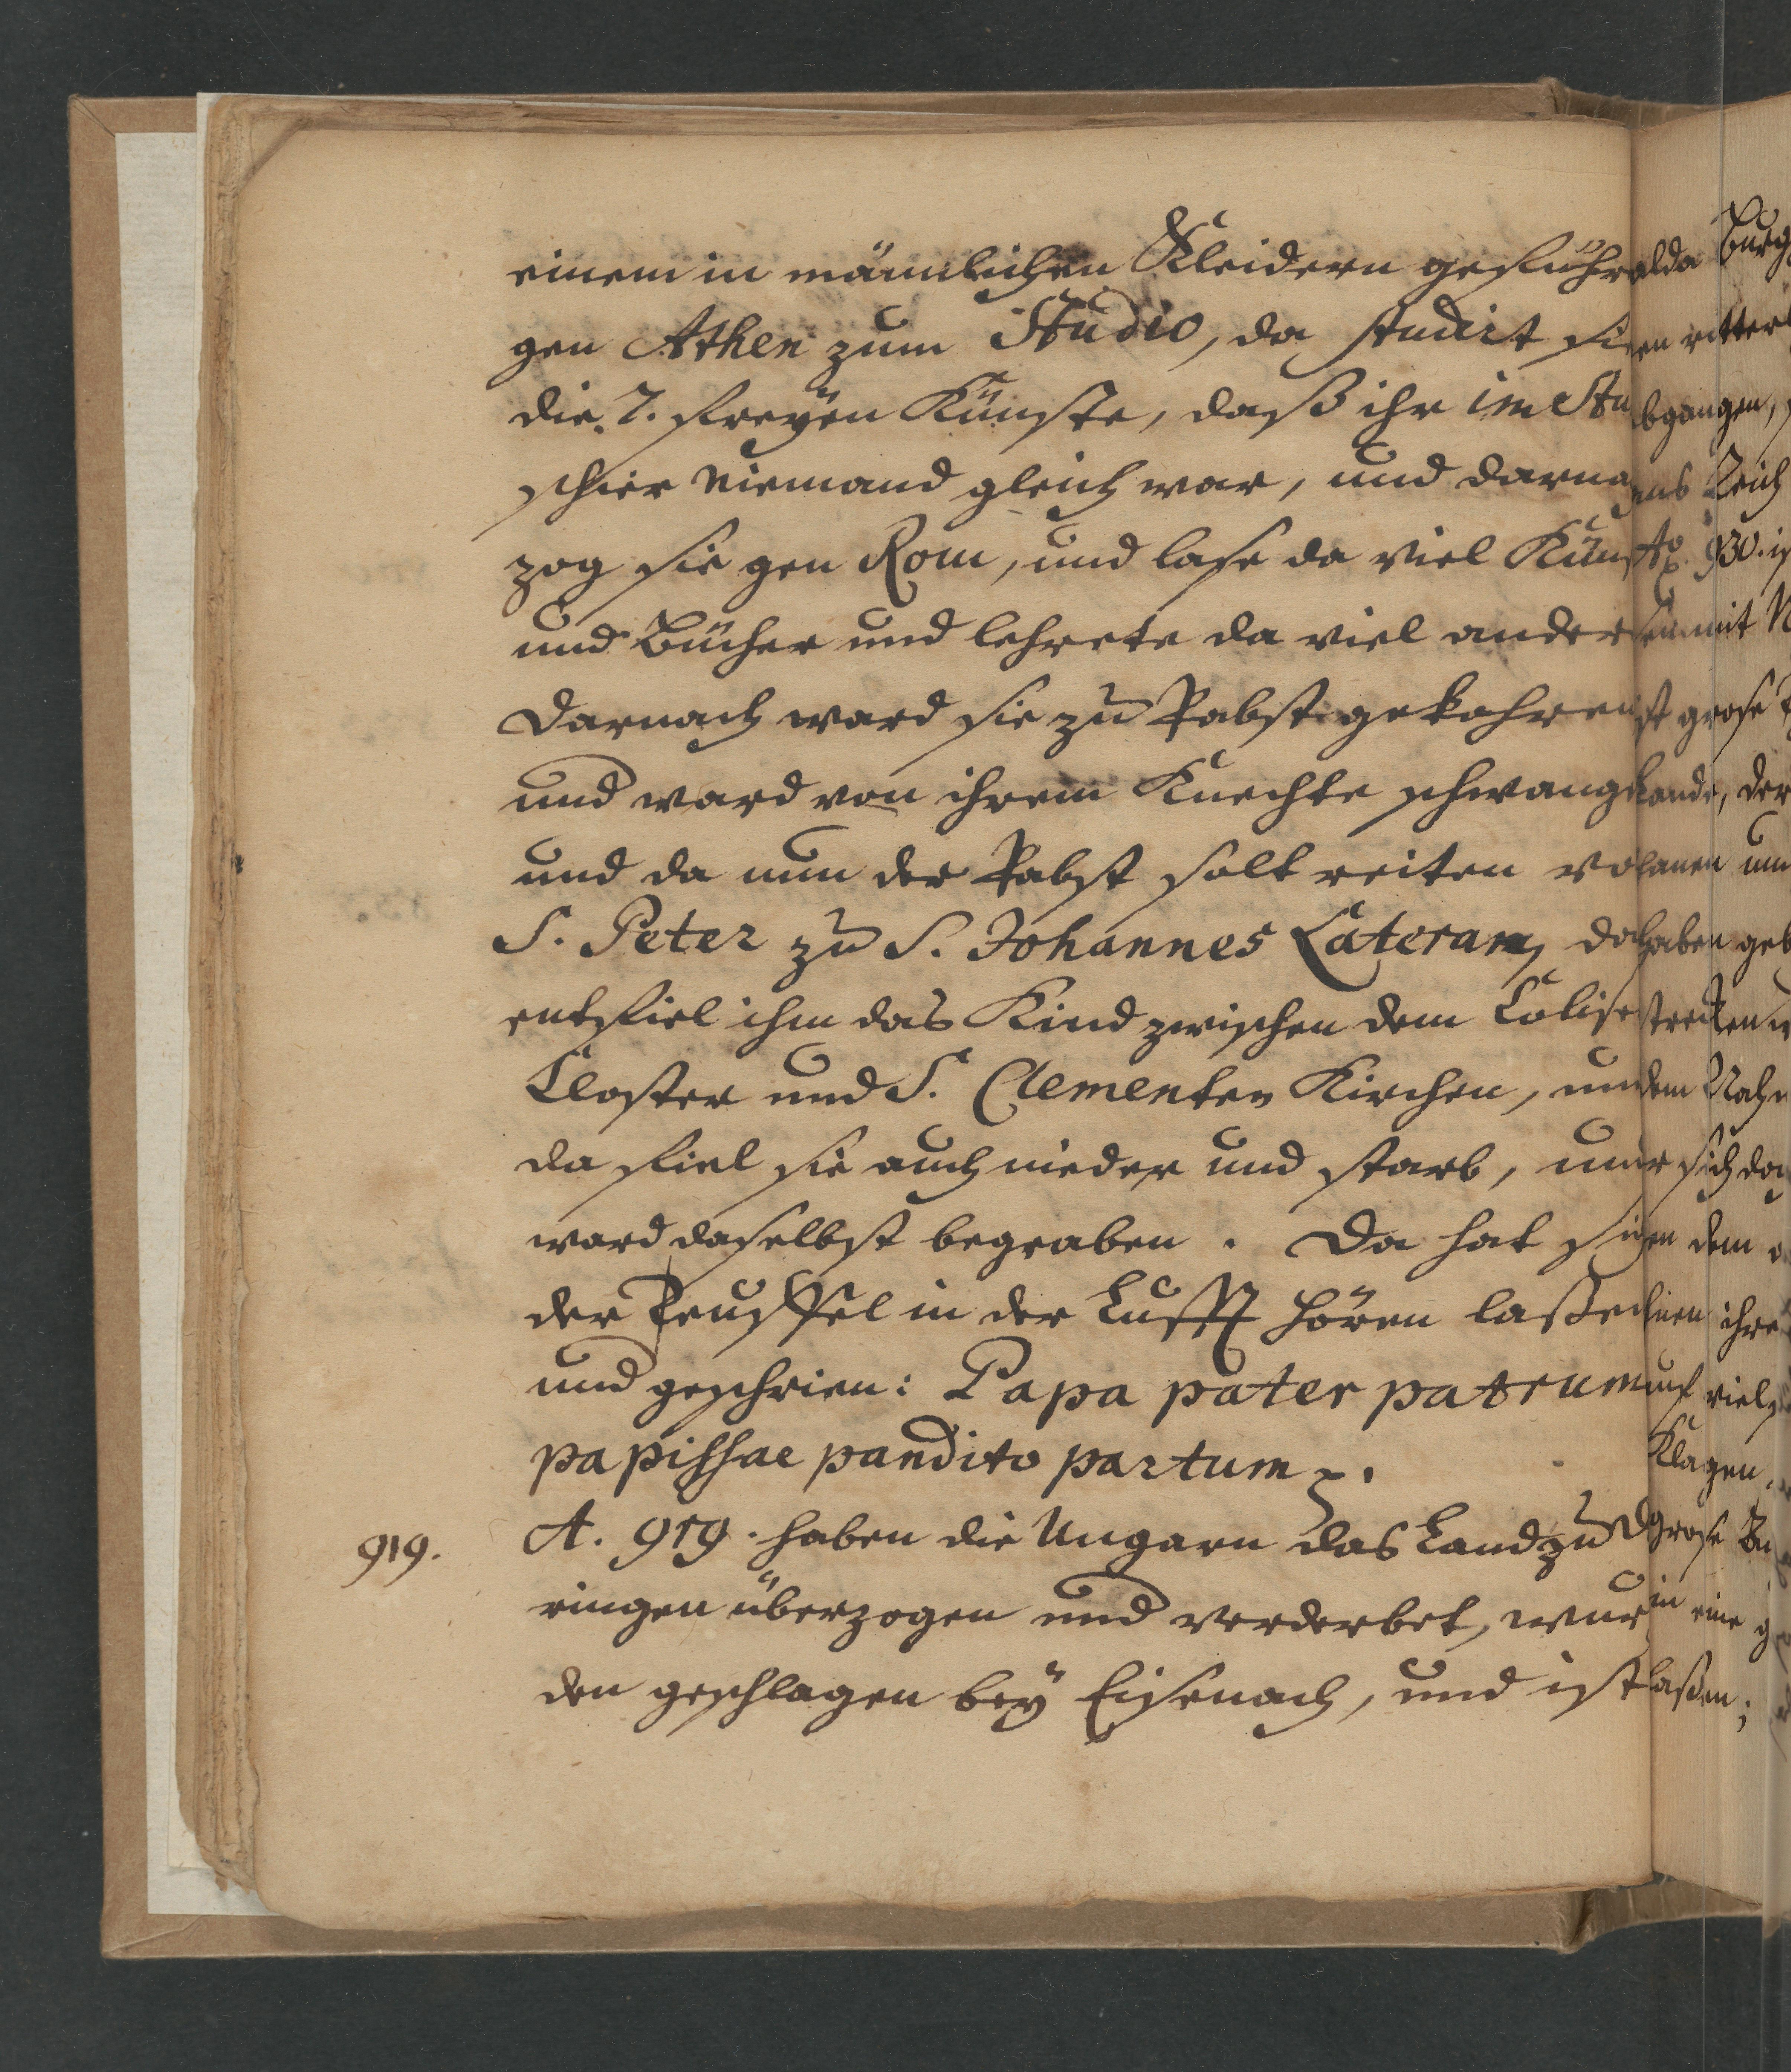 einem in männlichen Kleidern geführ
gen Athen zum Studio, da studirt sie
die 7. freÿen Künste, daß ihr im Stu
schier niemand gleich war, und darna
zog sie gen Rom, und lase da viel Künst
und Bücher und lehrete da viel ander
darnach ward sie zu Pabst gekohren
und ward von ihrem Knechte schwang
und da nun der Pabst solt reiten vo
S. Peter zu S. Johannes Lateran, da
entfiel ihm das Kind zwischen dem Colise
Closter und S. Clementen Kirchen, und
da fiel sie auch nieder und starb, und
ward daselbst begraben. Da hat sich
der Teuffel in der Lufft hören laßen
und geschrien: Papa pater patrum
papissae pandito partum.
919. A. 919. haben die Ungarn das Land zu D
ringen überzogen und verderbet, wur
den geschlagen beÿ Eisenach, und ist
Burg
alda
en ritter
bgangen,
ens Reich
Ao. 930. is
sen mit N
st grose
Lande, der
lanen un
haben geb
strecken
dem Nahm
r sich da
en dem
ihnen ihre
auf viel
Klagen.
grose
in eine g
laßen;